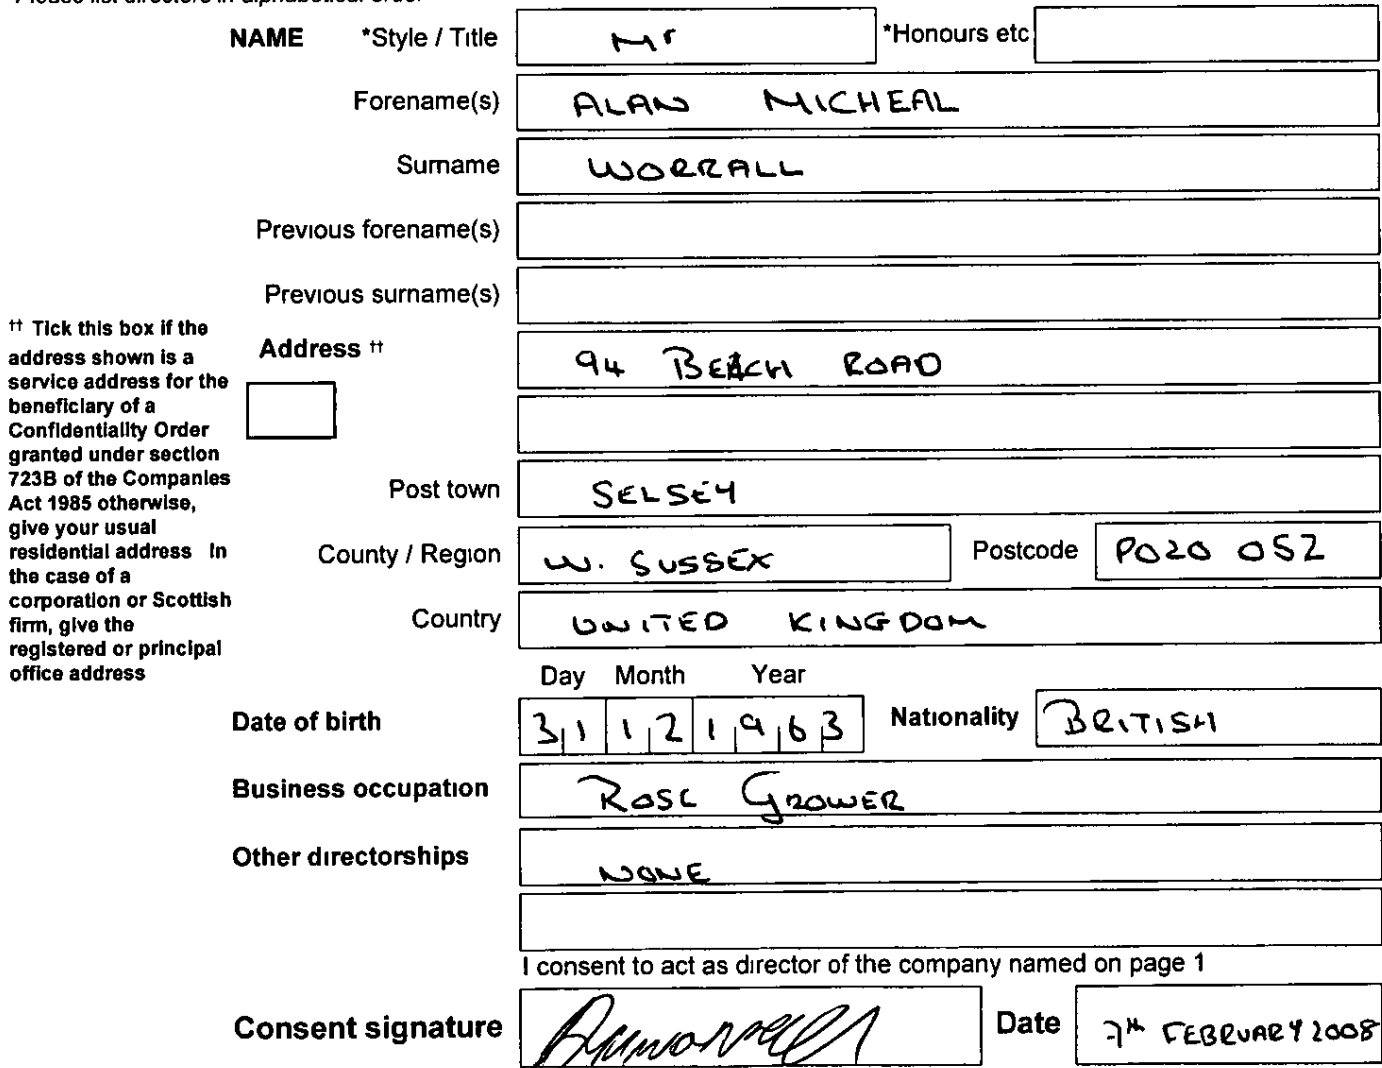 NAME *Style / Title Mr *Honours etc
Forename(s) ALAN MICHEAL
Surname WORRALL
Previous forename(s)
Previous surname(s)
†† Tick this box if the
address shown is a
service address for the
beneficiary of a
Confidentiality Order
granted under section
723B of the Companies
Act 1985 otherwise,
give your usual
residential address In
the case of a
corporation or Scottish
firm, give the
registered or principal
office address
Address †† 94 BEACH ROAD
Post town SELSEY
County / Region W. SUSSEX Postcode PO20 0SZ
Country UNITED KINGDOM
Day Month Year
Date of birth 31 12 1963 Nationality BRITISH
Business occupation ROSE GROWER
Other directorships NONE
I consent to act as director of the company named on page 1
Consent signature Date 7th FEBRUARY 2008